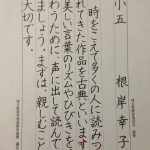 小五　根岸幸子
時をこえて多くの人に読みつ
れてきた作品を古典といいます
美しい言葉のリズムやひびきを
わうために声に出して読んで
ましょう。まずは、親しむこと
大切です。